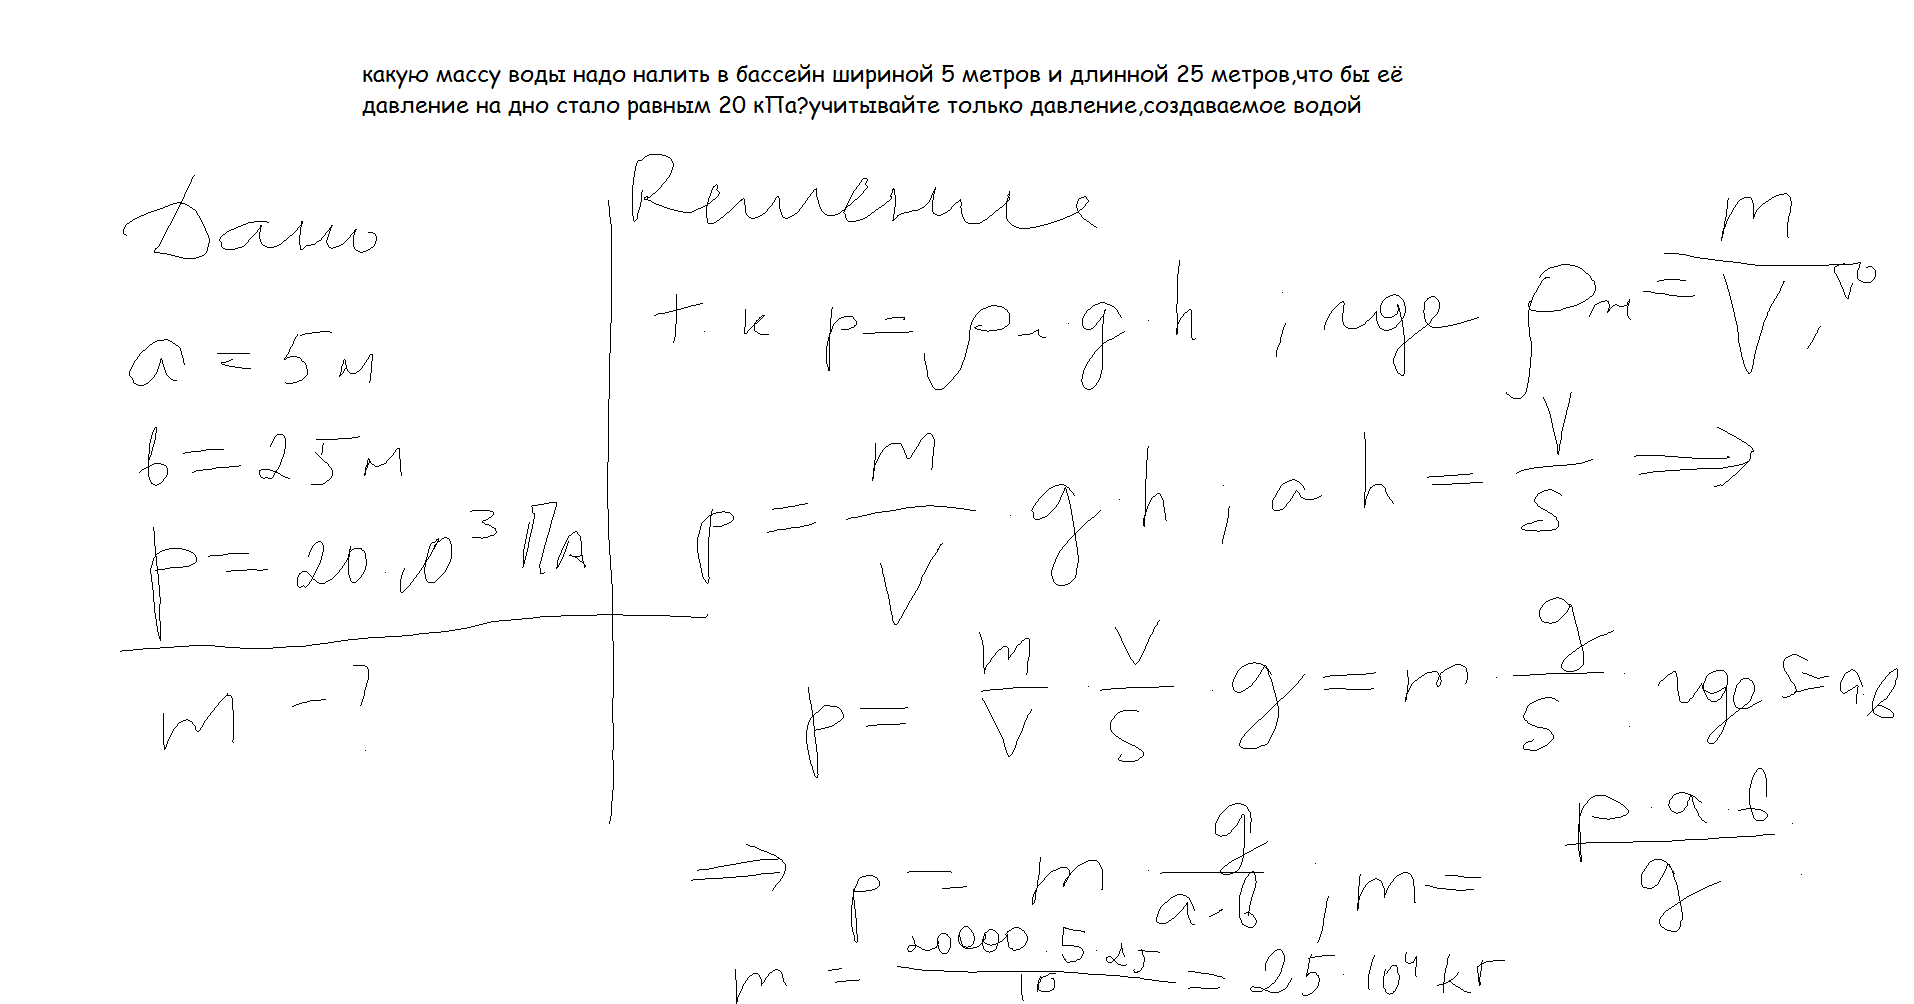 какую массу воды надо налить в бассейн шириной 5 метров и длинной 25 метров,что бы её
давление на дно стало равным 20 кПа?учитывайте только давление,создаваемое водой
Дано
a = 5 м
b = 25 м
p = 20·10³ Па
m - ?
Решение
т.к p = ρ · g · h ; где ρ = m/V, то
p = m/V · g · h ; а h = V/S ⇒
p = m/V · V/S · g = m · g/S · где S = a·b
⇒ p = m · g/a·b ; m = p·a·b/g
m = 20000·5·25/10 = 25·10⁴ кг